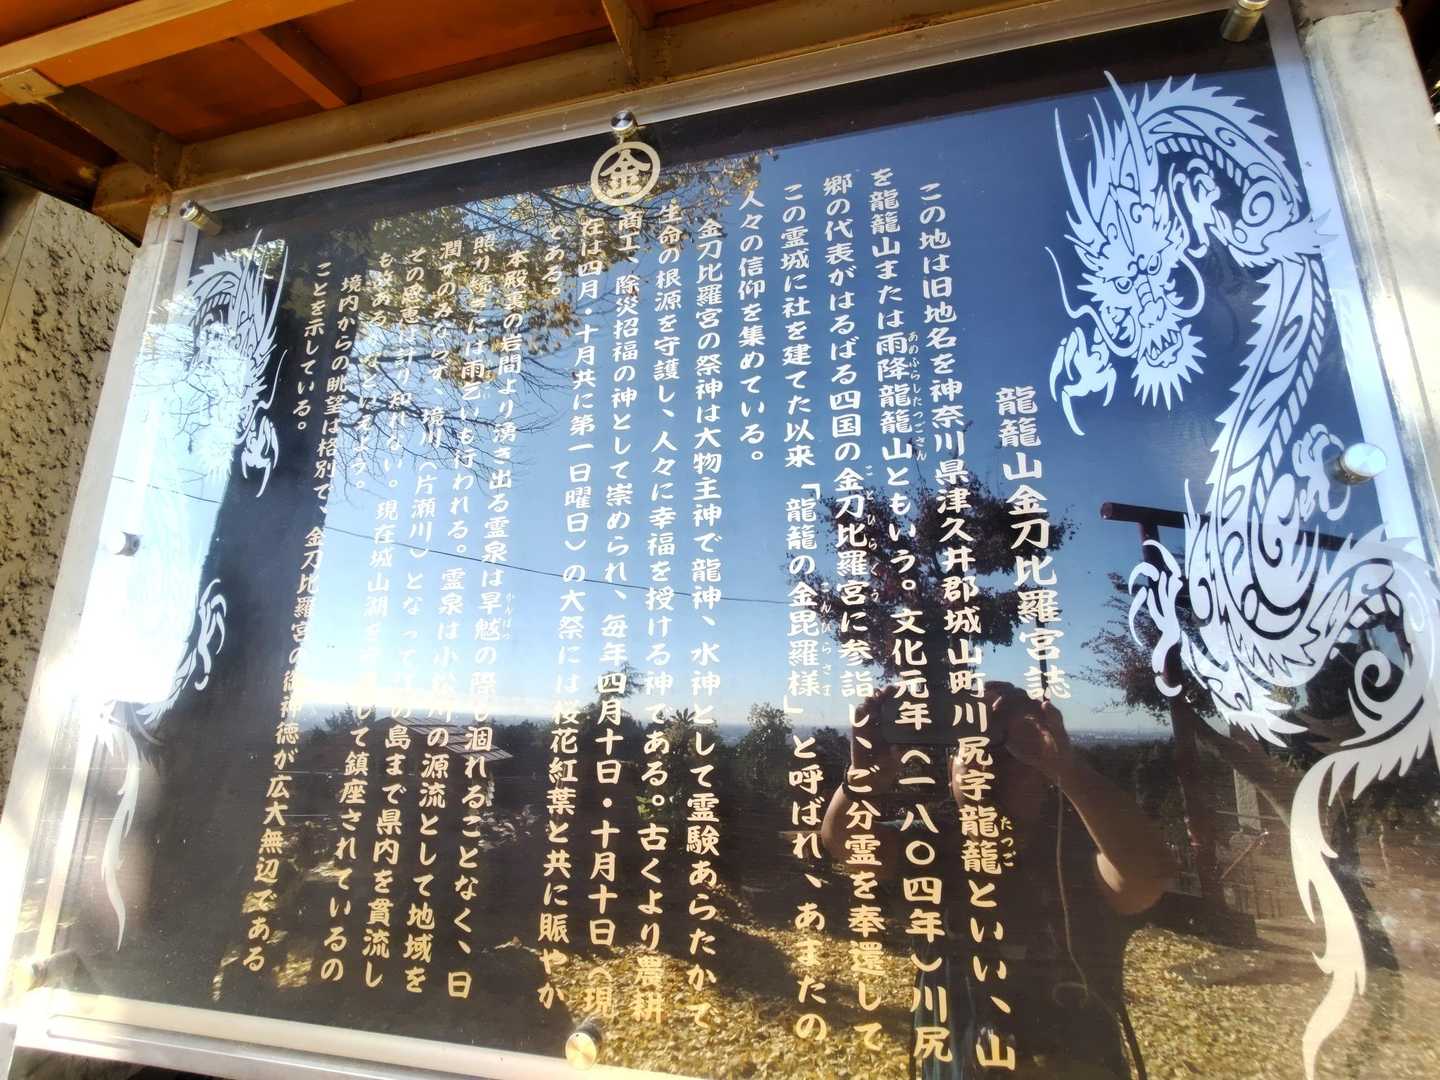 龍籠山金刀比羅宮誌
この地は旧地名を神奈川県津久井郡城山町川尻字龍籠といい、山
を龍籠山または雨降龍籠山ともいう。文化元年(一八〇四年)川尻
郷の代表がはるばる四国の金刀比羅宮に参詣し、ご分霊を奉還して
この霊城に社を建てた以来「龍籠の金毘羅様」と呼ばれ、あまたの
人々の信仰を集めている。
金刀比羅宮の祭神は大物主神で龍神、水神として霊験あらたかで
生命の根源を守護し、人々に幸福を授ける神である。古くより農耕
商工、除災招福の神として崇められ、毎年四月十日・十月十日(現
在は四月・十月共に第一日曜日)の大祭には桜花紅葉と共に賑やか
である。
本殿裏の岩間より湧き出る霊泉は旱魃の際し涸れることなく、日
照り続きには雨乞いも行われる。霊泉は小 川の源流として地域を
潤すのみならず、境川(片瀬川)となって の島まで県内を貫流し
その恩恵は計り知れない。現在城山湖を して鎮座されているの
も
境内からの眺望は格別で、金刀比羅宮の御神徳が広大無辺である
ことを示している。
金